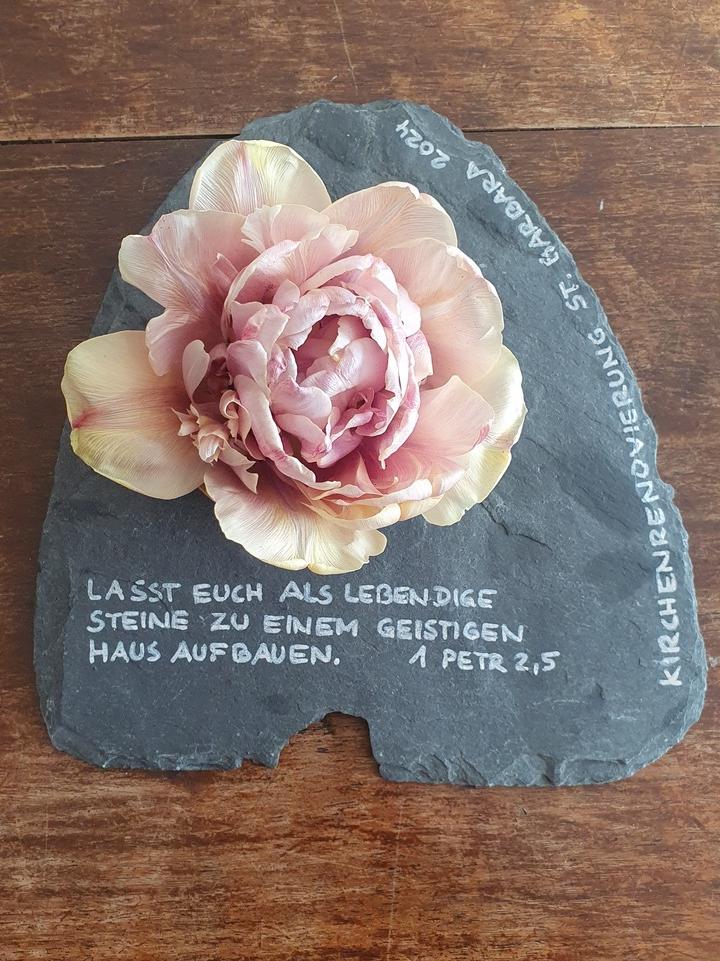 LASST EUCH ALS LEBENDIGE
STEINE ZU EINEM GEISTIGEN
HAUS AUFBAUEN. 1 PETR 2,5
KIRCHENRENOVIERUNG ST. BARBARA 2024